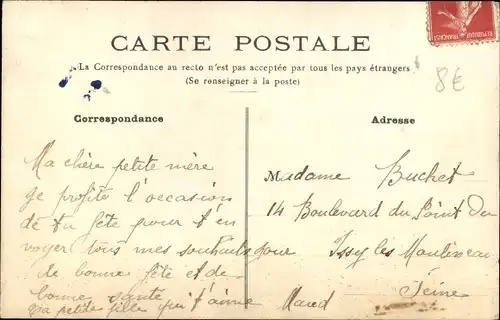 REPUBLIQUE FRANÇAISE
8€
CARTE POSTALE
La Correspondance au recto n'est pas acceptée par tous les pays étrangers
(Se renseigner à la poste)
Correspondance
Ma chère petite mère
je profite l'occasion
de ta fête pour t'en
voyer tous mes souhaits pour
de bonne fête et de
bonne sante
ta petite fille qui t'aime Maud
Adresse
Madame Buchet
14 Boulevard du Point du
Issy les Moulineau
Seine